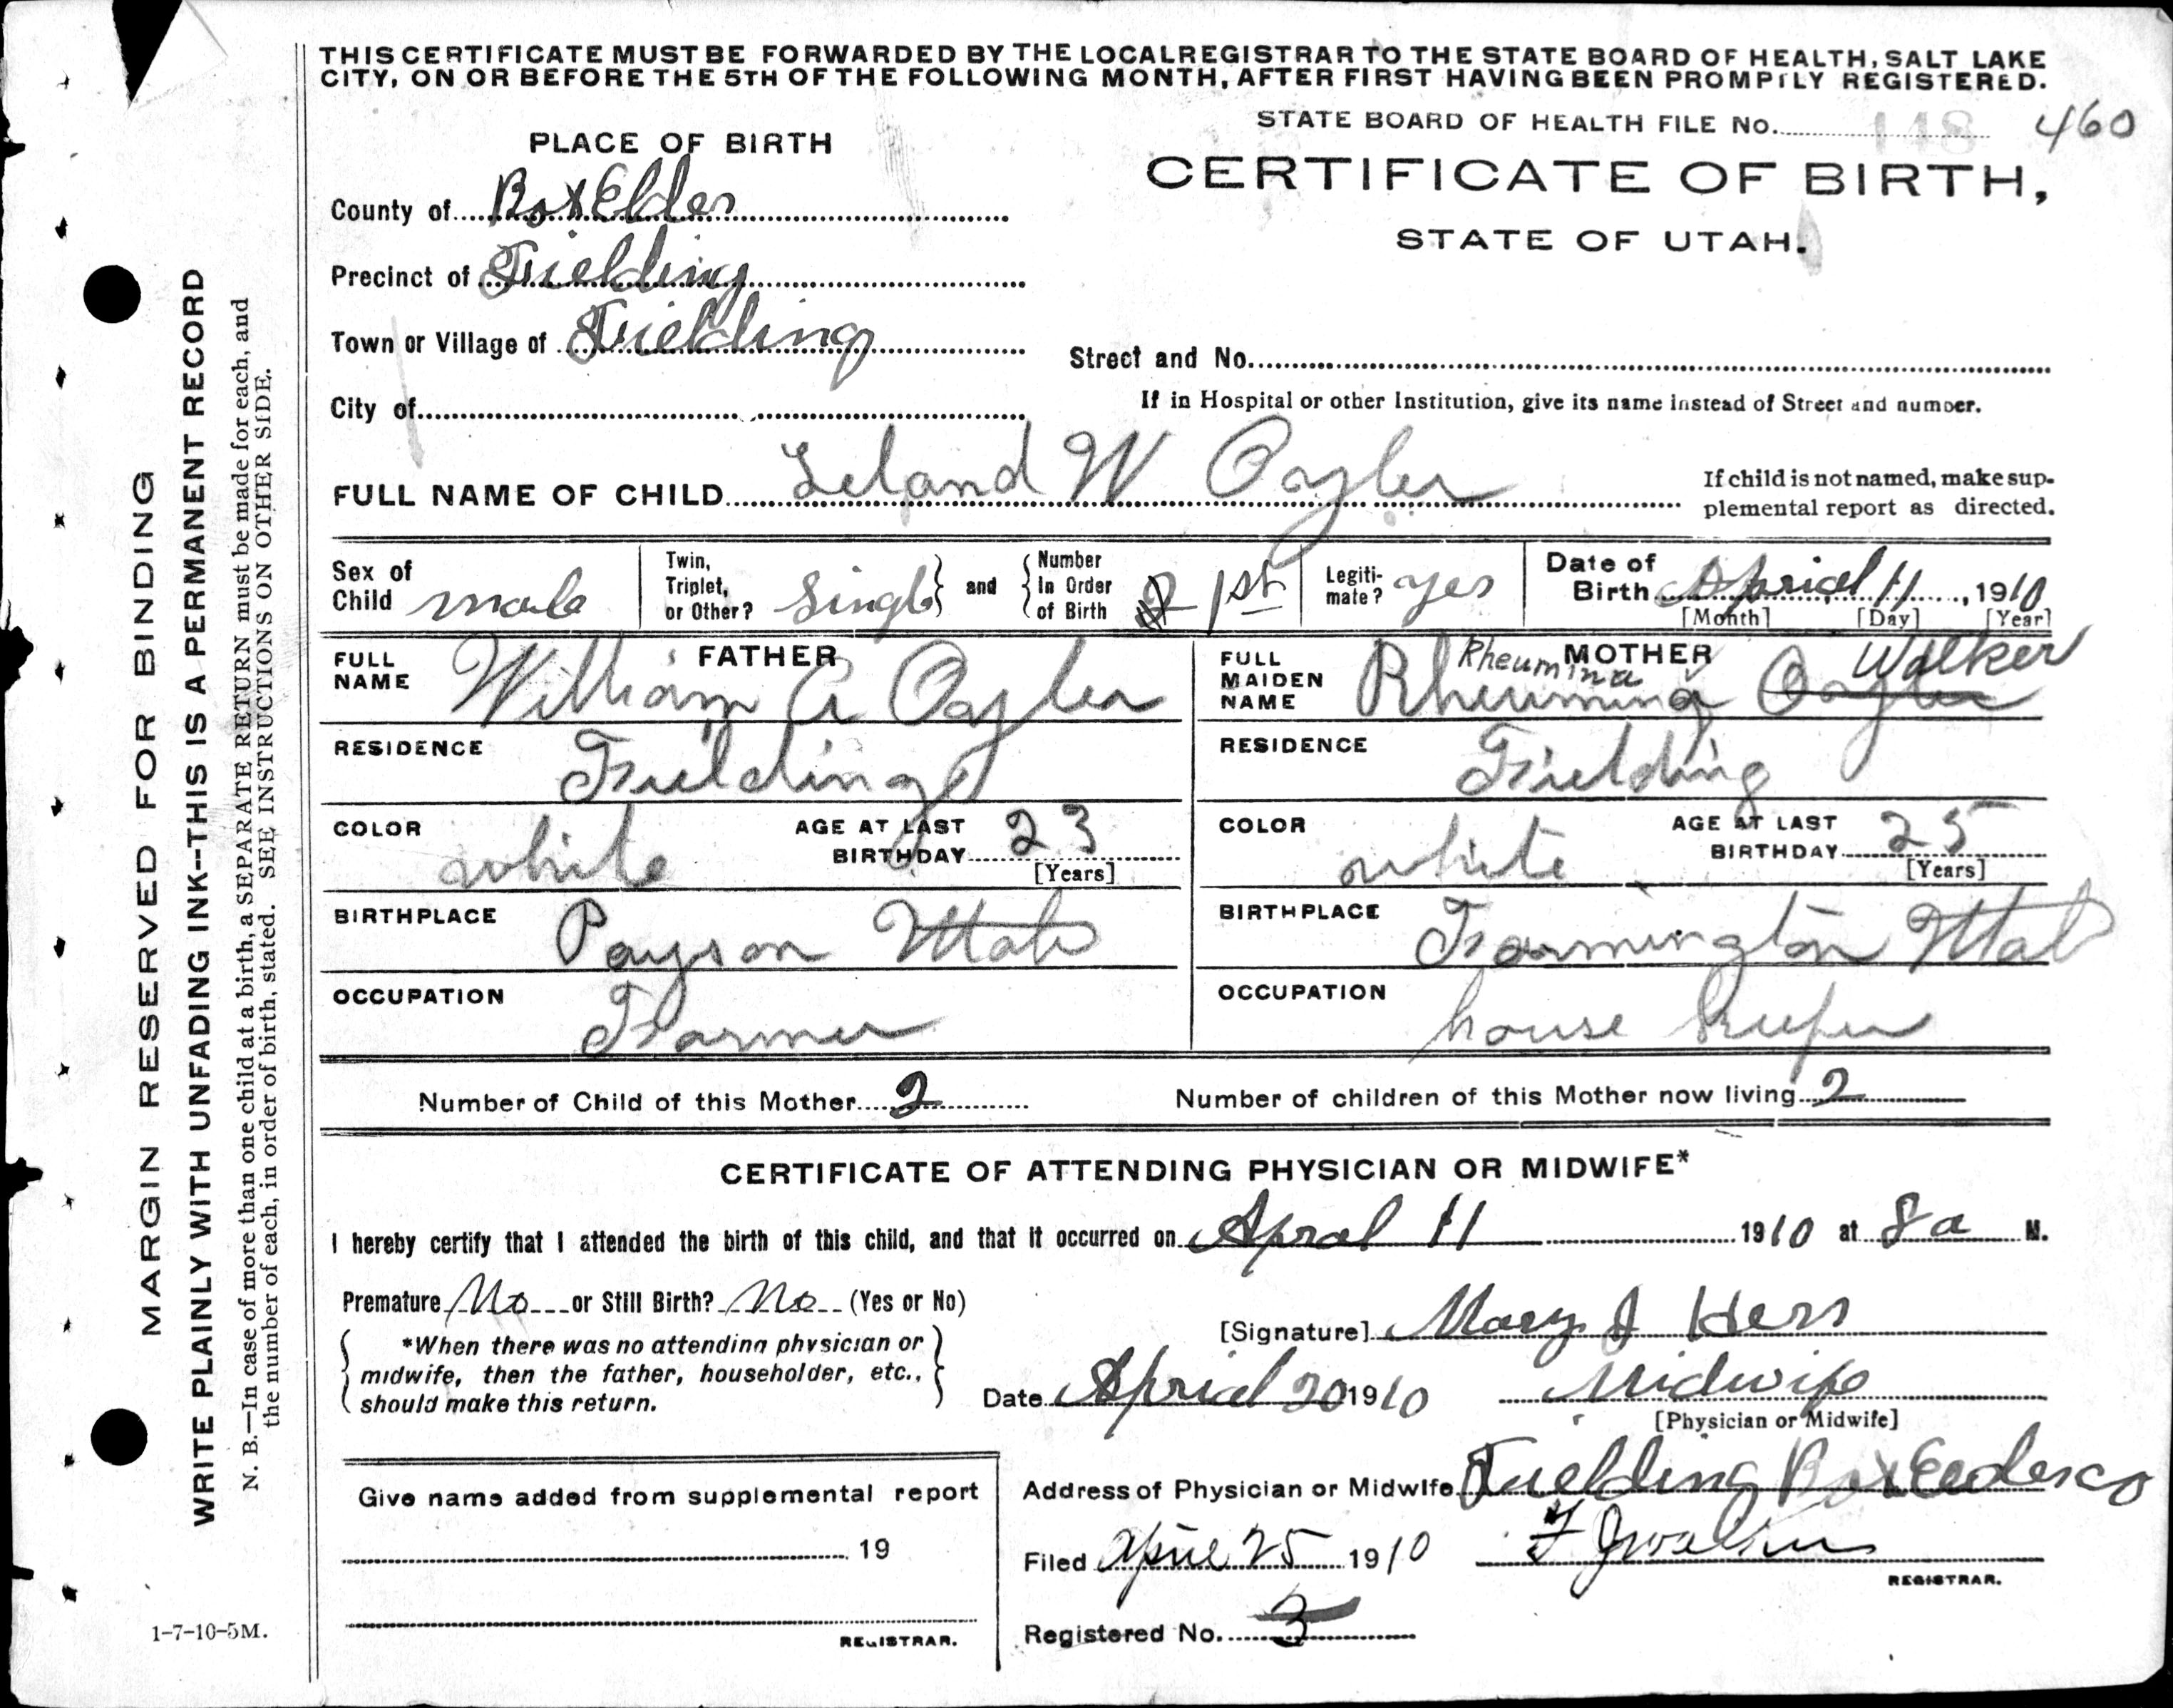 THIS CERTIFICATE MUST BE FORWARDED BY THE LOCAL REGISTRAR TO THE STATE BOARD OF HEALTH, SALT LAKE
CITY, ON OR BEFORE THE 5TH OF THE FOLLOWING MONTH, AFTER FIRST HAVING BEEN PROMPTLY REGISTERED.
STATE BOARD OF HEALTH FILE No. 148 460
PLACE OF BIRTH
CERTIFICATE OF BIRTH,
STATE OF UTAH.
County of Box Elder
Precinct of Fielding
Town or Village of Fielding
Street and No.
City of
If in Hospital or other Institution, give its name instead of Street and number.
FULL NAME OF CHILD Leland W Oayler
If child is not named, make sup-
plemental report as directed.
Sex of Child male
Twin, Triplet, or Other? Single and Number In Order of Birth 1st
Legiti-mate? yes
Date of Birth Aprial 11, 1910
[Month] [Day] [Year]
FATHER
FULL NAME William A Oayler
RESIDENCE Fielding
COLOR white
AGE AT LAST BIRTHDAY 23
[Years]
BIRTHPLACE Payson Utah
OCCUPATION Farmer
MOTHER
FULL MAIDEN NAME Rheumina Rheumina Oayler Walker
RESIDENCE Fielding
COLOR white
AGE AT LAST BIRTHDAY 25
[Years]
BIRTHPLACE Farmington Utah
OCCUPATION house keeper
Number of Child of this Mother 2
Number of children of this Mother now living 2
CERTIFICATE OF ATTENDING PHYSICIAN OR MIDWIFE*
I hereby certify that I attended the birth of this child, and that it occurred on Apral 11 1910 at 8 a M.
Premature No or Still Birth? No (Yes or No)
*When there was no attending physician or
midwife, then the father, householder, etc.,
should make this return.
[Signature] Mary J Hess
Date Aprial 20 1910
Midwife
[Physician or Midwife]
Address of Physician or Midwife Fielding Box Elder co
Give name added from supplemental report
19
REGISTRAR.
Filed April 25 1910
REGISTRAR.
Registered No. 3
MARGIN RESERVED FOR BINDING
WRITE PLAINLY WITH UNFADING INK--THIS IS A PERMANENT RECORD
N. B.—In case of more than one child at a birth, a SEPARATE RETURN must be made for each, and
the number of each, in order of birth, stated. SEE INSTRUCTIONS ON OTHER SIDE.
1-7-10-5M.